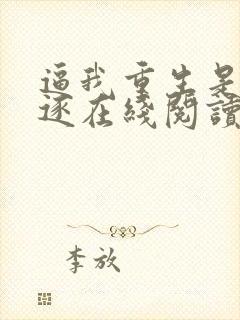 逼我重生是
逐在綫閱讀
李放